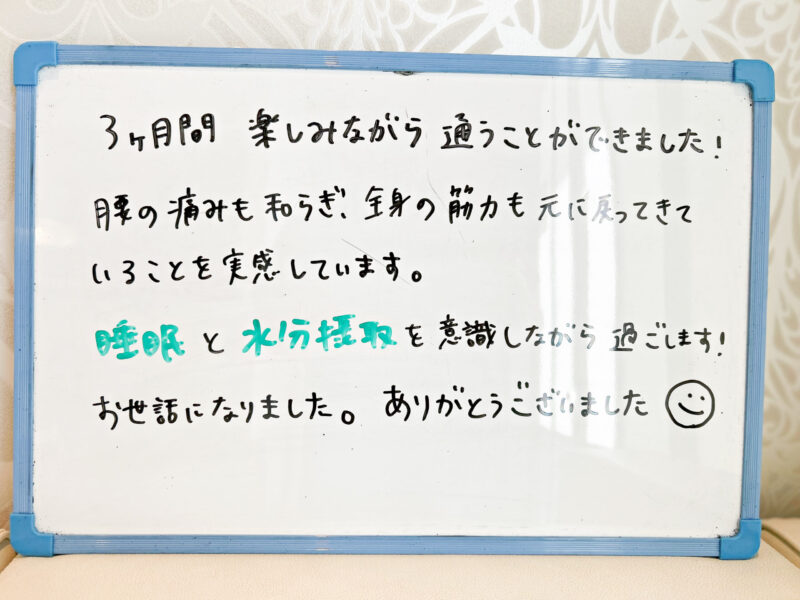 3ヶ月間 楽しみながら 通うことができました!
腰の痛みも和らぎ、全身の筋力も元に戻ってきて
いることを実感しています。
睡眠と水分摂取を意識しながら過ごします!
お世話になりました。ありがとうございました